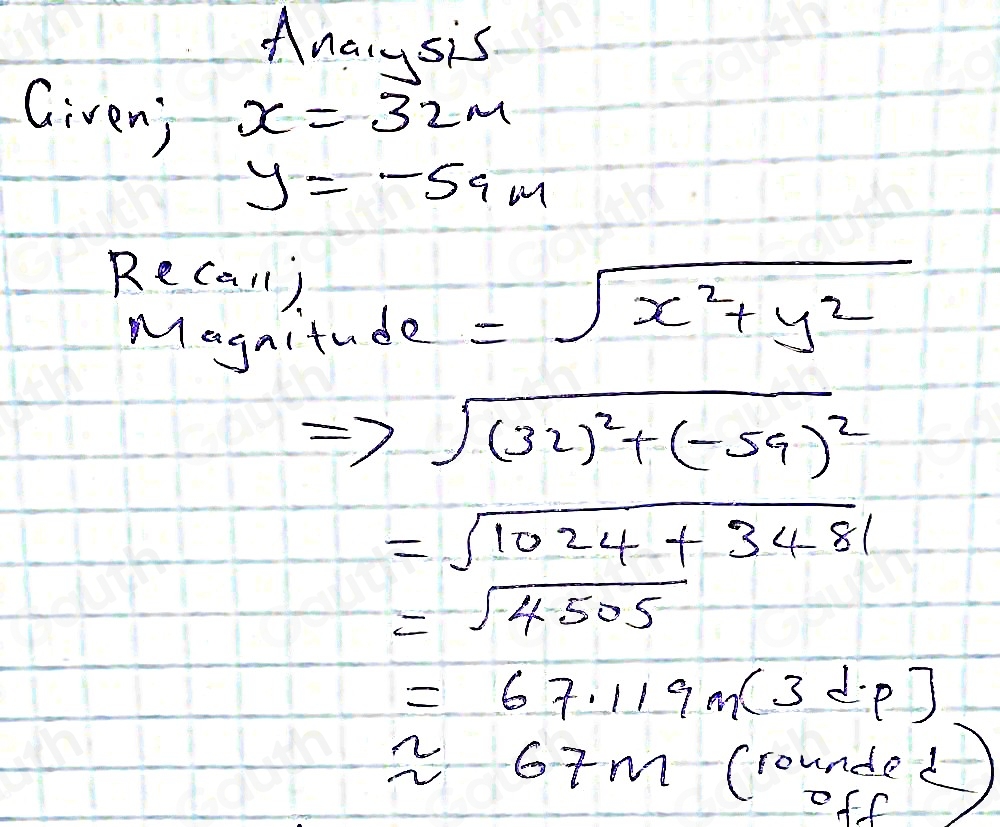 Analysis
Given; x = 32m
y = -59m
Recall;
Magnitude = √x²+y²
=> √(32)²+(-59)²
= √1024 + 3481
= √4505
= 67.119m(3 d.p]
≈ 67m (rounded
off)